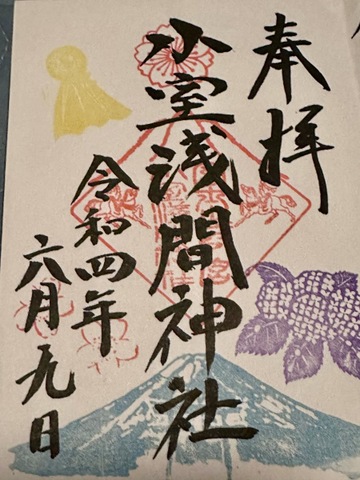 奉拝
小室浅間神社
令和四年
六月九日